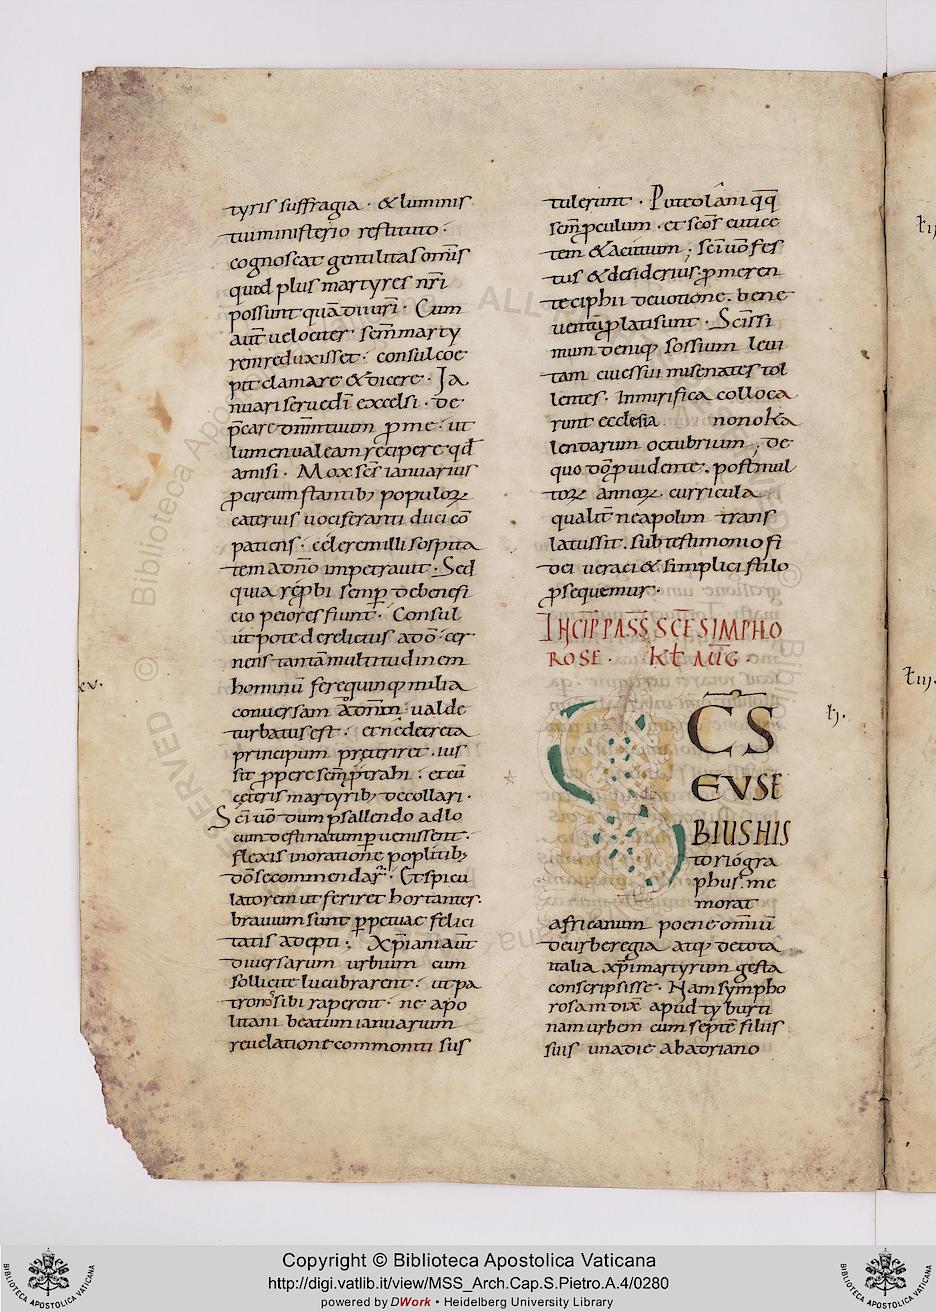 tyris suffragia · & luminis
tui ministerio restituto ·
cognoscat gentilitas om̅is
quod plus martyres nr̅i
possunt quā dii uri̅ · Cum
aut̅ velociter sem̅ marty
rem reduxisset · consul coe
pit clamare & dicere · Ia
nuari serue di̅ excelsi · de
p̅care dm̅ tuum p̲ me · ut
lumen ualeam recipere qd̅
amisi · Mox sc̅s ianuarius
p̲ circumstantib; populoꝝ
cateruis uociferanti duci co̅
patiens · celerem illi sospita
tem a dn̅o impetrauit · Sed
quia rep̲bi semp̲ de benefi
cio peiores fiunt · Consul
utpote derelictus a do̅ · cer
nens tantā multitudinem
hominū fere quinq; milia
conuersam ad dn̅m · ualde
turbatus est · et ne decreta
principum preteriret · ius
sit p̲pere sem̅ p̲trahi · et cū
ceteris martyrib; decollari ·
Sc̅i uō dum psallendo ad lo
cum destinatum p̲uenissent ·
flexis in oratione poplitib;
dō se commendar̅ · Et spicu
latorem ut feriret hortantes ·
brauium sunt p̲petuae felici
tatis adepti ; Xp̅iani aūt
diuersarum urbium cum
sollicite lucubrarent · ut pa
tronos sibi raperent · ne apo
litani beatum ianuarium
reuelatione commoniti sus
tulerunt · Puteolani qq̅
sem̅ p̲culum · et scōs eutice
tem & acutium ; sc̅i uō fes
tus & desiderius · p̲ meren
te ciphii deuotione · bene
uentū p̲lati sunt · Scīssi
mum deniq; sossium leui
tam ciues sui misenates tol
lentes · In mirifica colloca
runt ecclesia nono Ka
lendarum octubrium ; de
quo dō p̲uidente · post mul
toꝝ annoꝝ curricula
qualit̅ neapolim trans
latus sit · sub testimonio fi
dei ueraci & simplici stilo
p̲sequemur ·
INCIP̅ PASS̅ SC̅E SIMPHO
ROSE · Kł AUG̅ ·
CS
EVSE
BIUS HIS
toriógra
phus · me
morat
africanum poene omniū
de urbe regia atq; de tota
italia xp̅i martyrum gesta
conscripsisse · Nam sympho
rosam dix̅ apud tyburti
nam urbem cum septē filiis
suis una die ab adriano
xv.
łj.
łıı.
Copyright © Biblioteca Apostolica Vaticana
http://digi.vatlib.it/view/MSS_Arch.Cap.S.Pietro.A.4/0280
powered by DWork • Heidelberg University Library